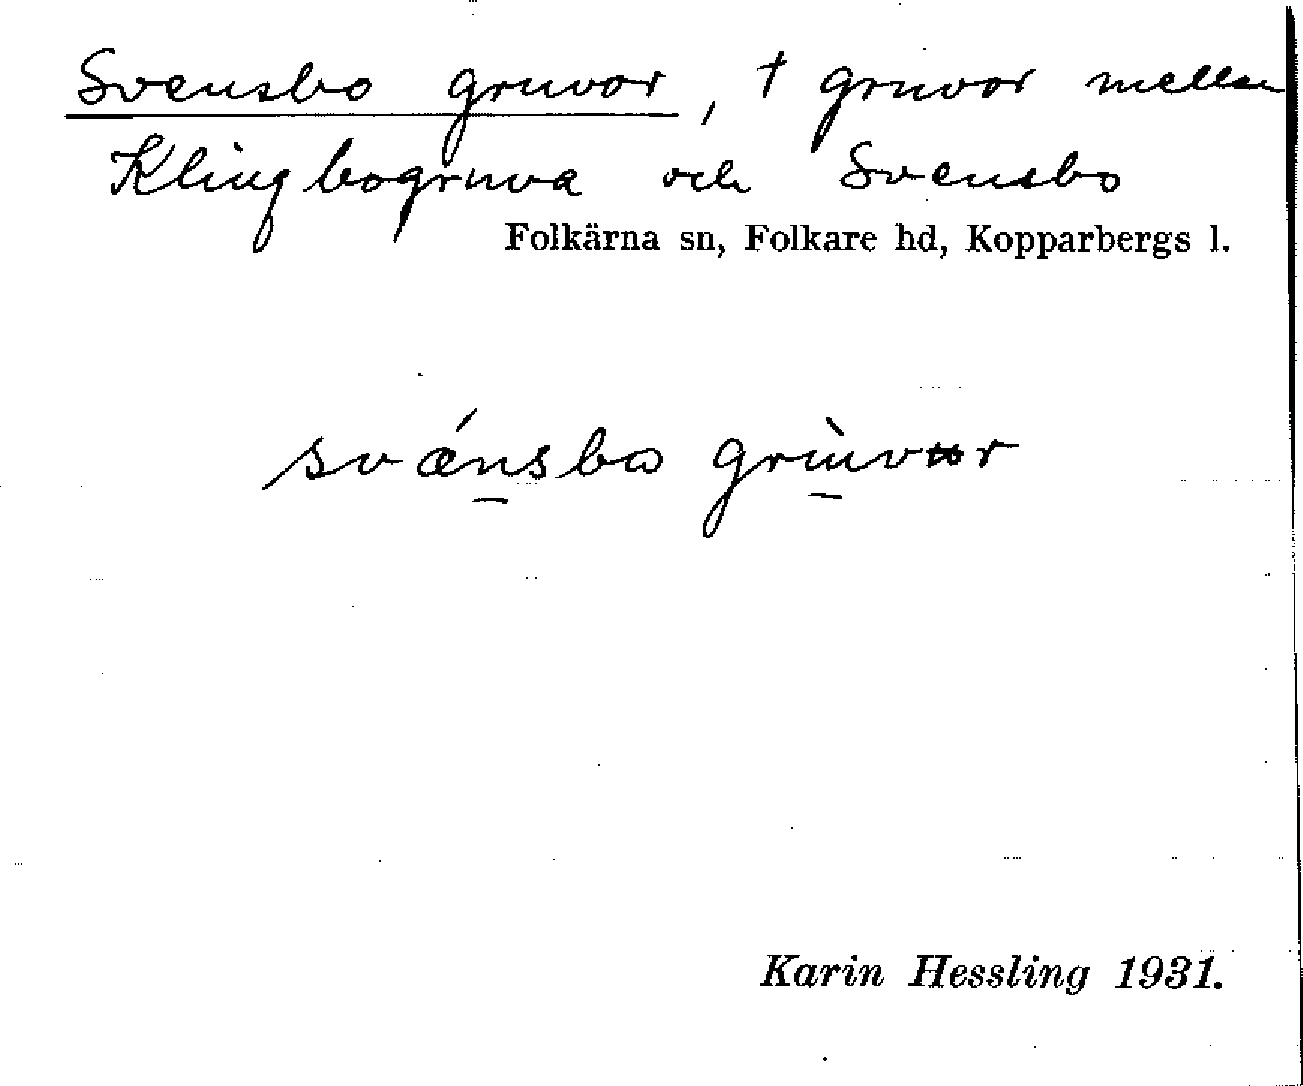 Svensbo gruvor, † gruvor mellan
Klingbogruva och Svensbo
Folkärna sn, Folkare hd, Kopparbergs l.
svǽnsbo grùvur
Karin Hessling 1931.